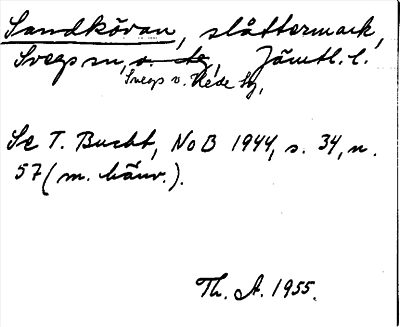 Sandkövan, slåttermark,
Svegs sn, o. tg, Jämtl. l.
Svegs o. Hede tg,
Se T. Bucht, NoB 1944, s. 34, n.
57 (m. hänv.).
Th. A. 1955.